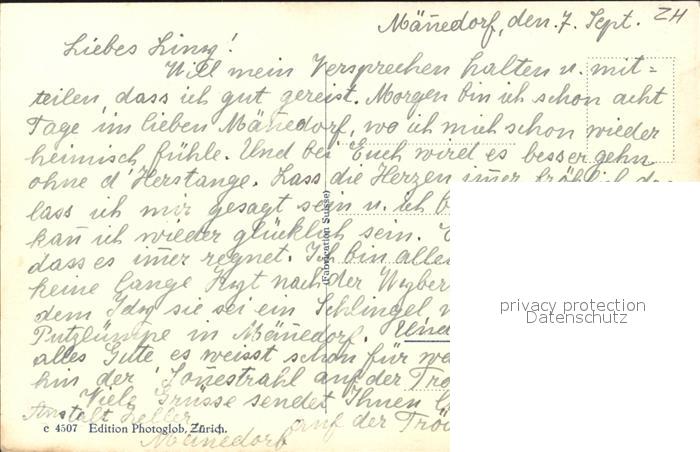 Mäñedorf, den 7. Sept. ZH
Liebes !
Will mein Versprechen halten u. mit=
teilen, dass ich gut gereist. Morgen bin ich schon acht
Tage im lieben Mäñedorf, wo ich mich schon wieder
heimisch fühle. Und bei Euch wird es besser gehn
ohne d' Herstange. Lass die Herzen im̄er fröhlich
lass ich mir gesagt sein u. ich
kañ ich wieder glücklich sein.
dass es im̄er regnet. Ich bin alle
keine lange Zyt nach der
dem sie sei ein Schlingel
Putzlümpe in Mäñedorf. Und
alles Gute es weisst schon für
hin der Soñestrahl auf der
Viele Grüsse sendet Ihnen
Anstalt Zeller auf der
Mäñedorf
(Fabrication Suisse)
c 4507 Edition Photoglob, Zürich.
privacy protection
Datenschutz